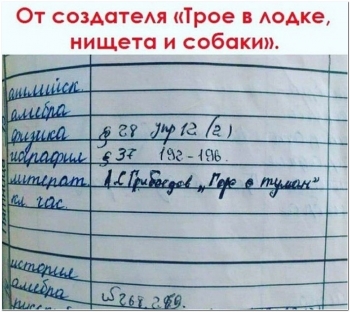 От создателя «Трое в лодке,
нищета и собаки».
английск.
алгебра
физика § 28 упр 12 (2)
география § 37 192-196.
литерат. А.С Грибоедов „Горе туман"
кл. час.
история
алгебра № 268, 269.